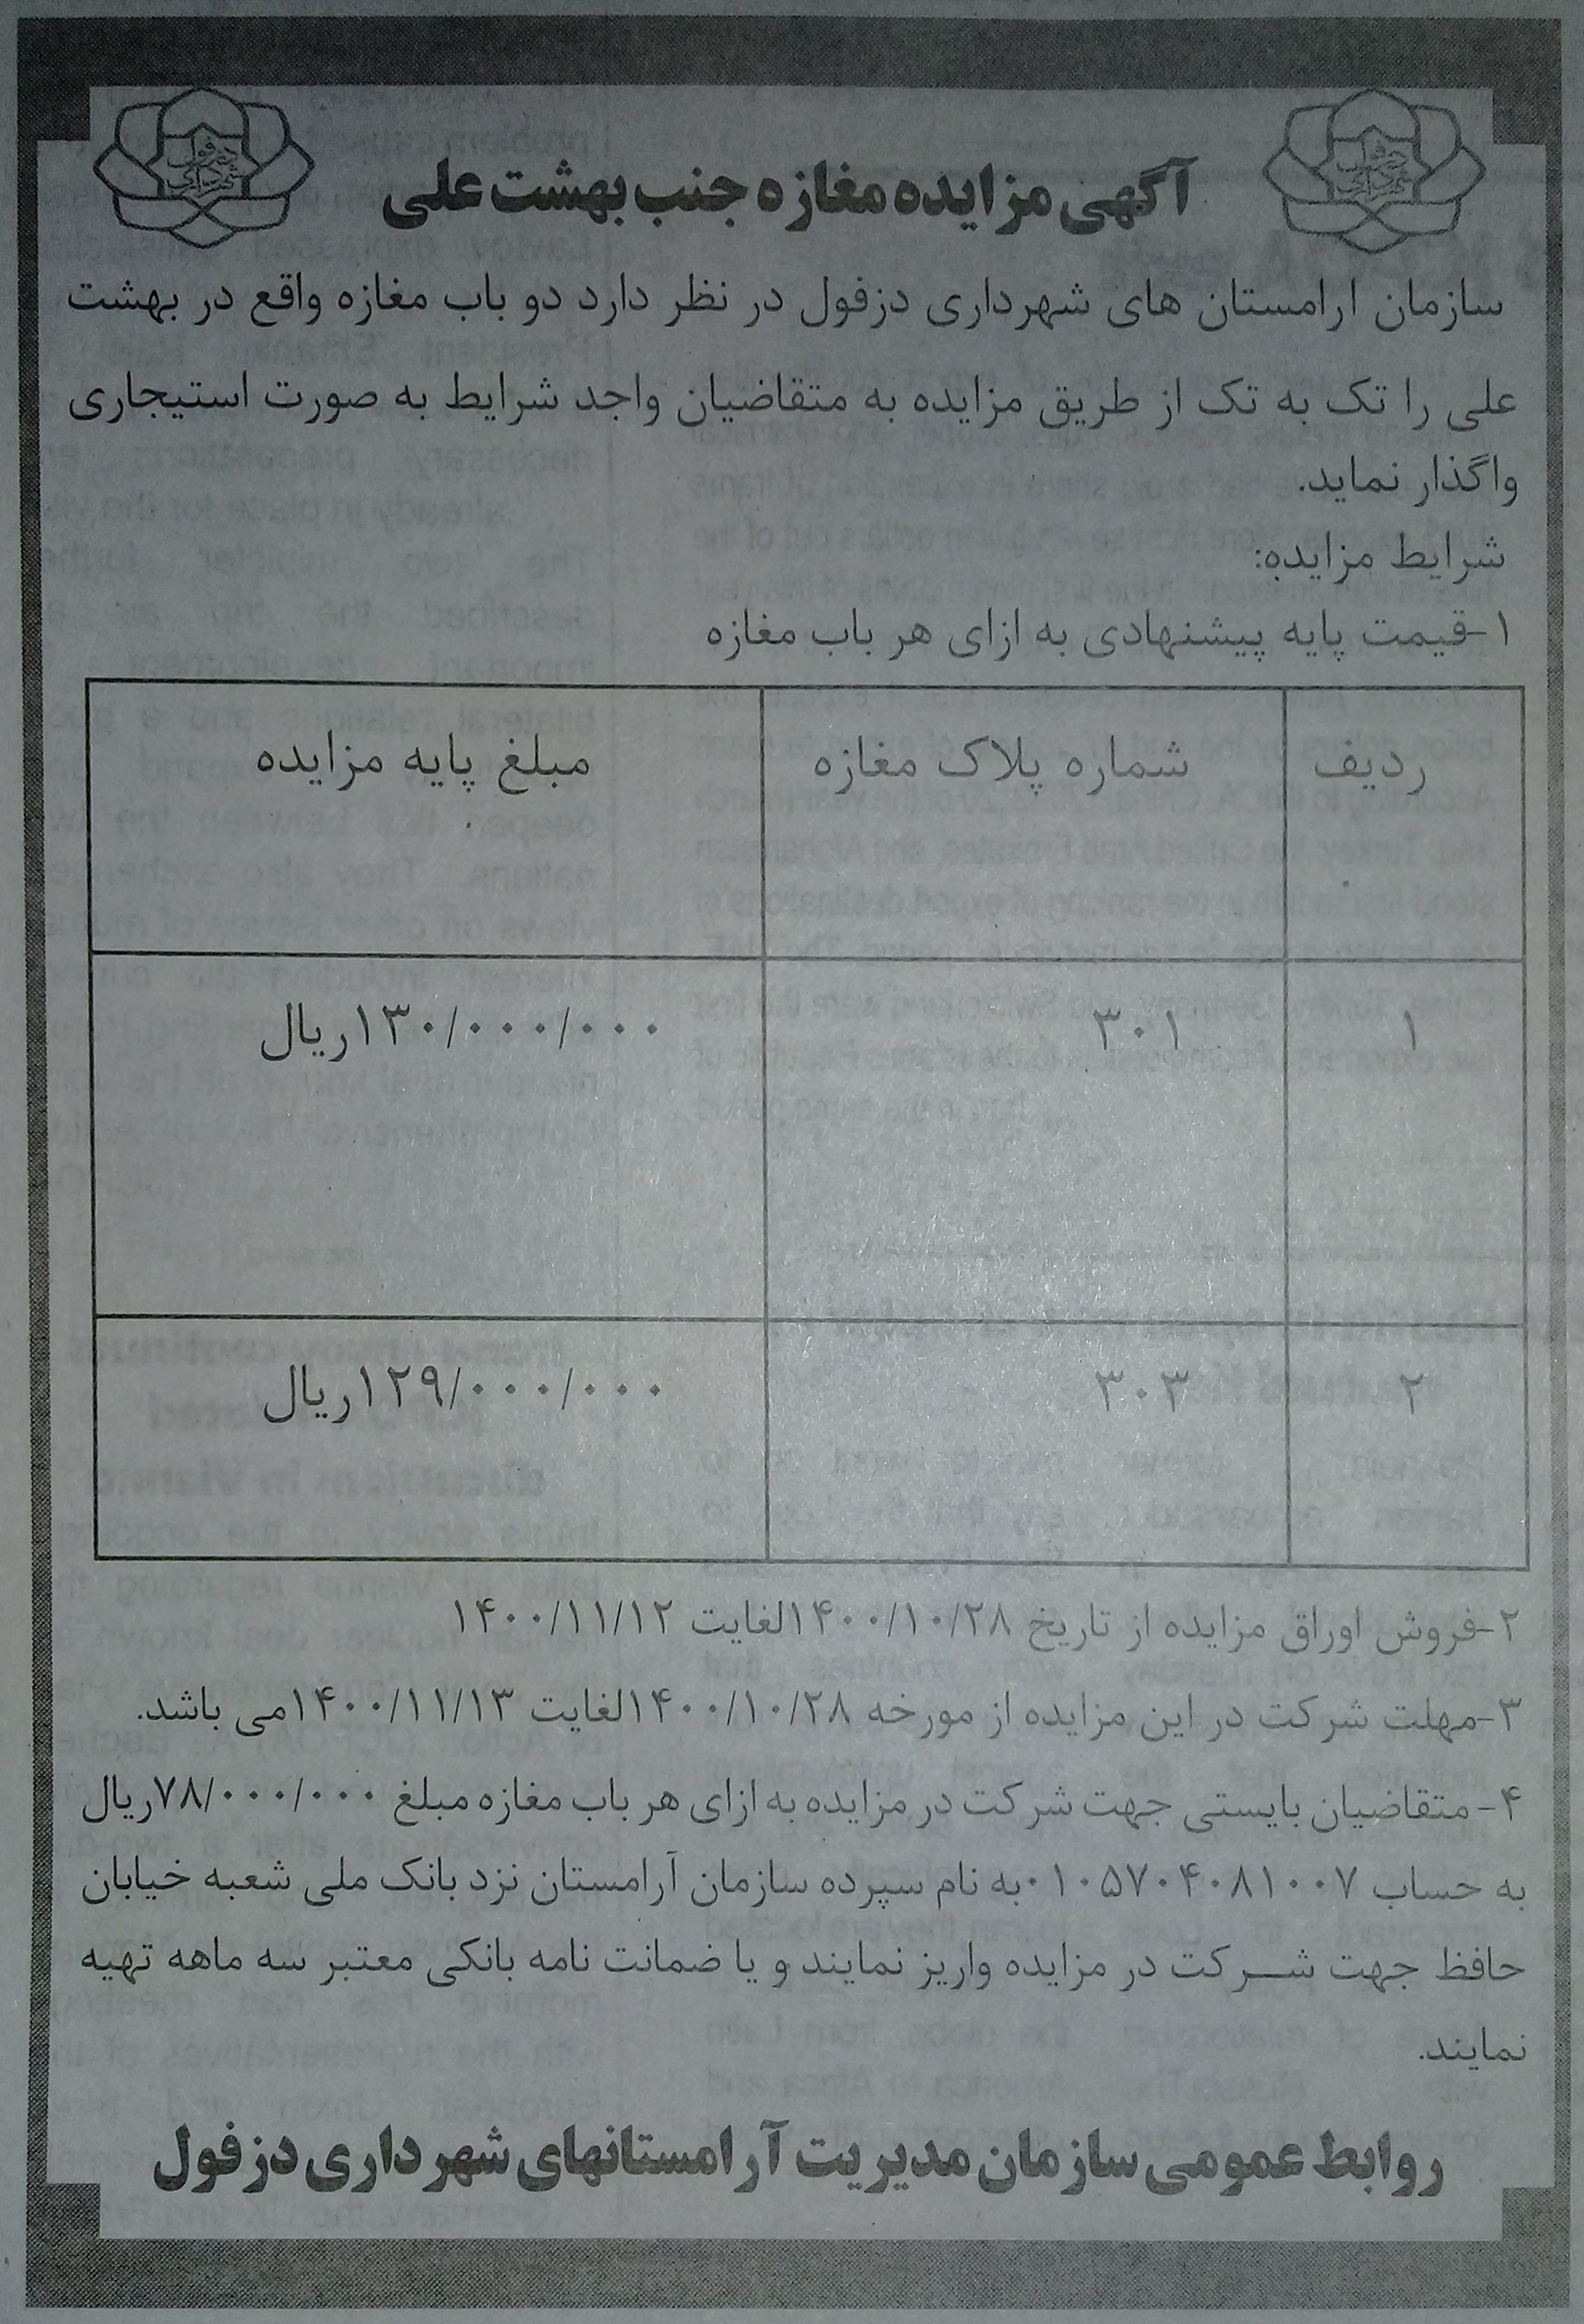 آگهی مزایده مغازه جنب بهشت علی
سازمان ارامستان های شهرداری دزفول در نظر دارد دو باب مغازه واقع در بهشت
علی را تک به تک از طریق مزایده به متقاضیان واجد شرایط به صورت استیجاری
واگذار نماید.
شرایط مزایده:
۱-قیمت پایه پیشنهادی به ازای هر باب مغازه
ردیف شماره پلاک مغازه مبلغ پایه مزایده
۱ ۳۰۱ ۱۳۰/۰۰۰/۰۰۰ریال
۲ ۳۰۳ ۱۲۹/۰۰۰/۰۰۰ریال
۲-فروش اوراق مزایده از تاریخ ۱۴۰۰/۱۰/۲۸لغایت ۱۴۰۰/۱۱/۱۲
۳-مهلت شرکت در این مزایده از مورخه ۱۴۰۰/۱۰/۲۸لغایت ۱۴۰۰/۱۱/۱۳می باشد.
۴- متقاضیان بایستی جهت شرکت در مزایده به ازای هر باب مغازه مبلغ ۷۸/۰۰۰/۰۰۰ریال
به حساب ۰۱۰۵۷۰۴۰۸۱۰۰۷به نام سپرده سازمان آرامستان نزد بانک ملی شعبه خیابان
حافظ جهت شرکت در مزایده واریز نمایند و یا ضمانت نامه بانکی معتبر سه ماهه تهیه
نمایند.
روابط عمومی سازمان مدیریت آرامستانهای شهرداری دزفول